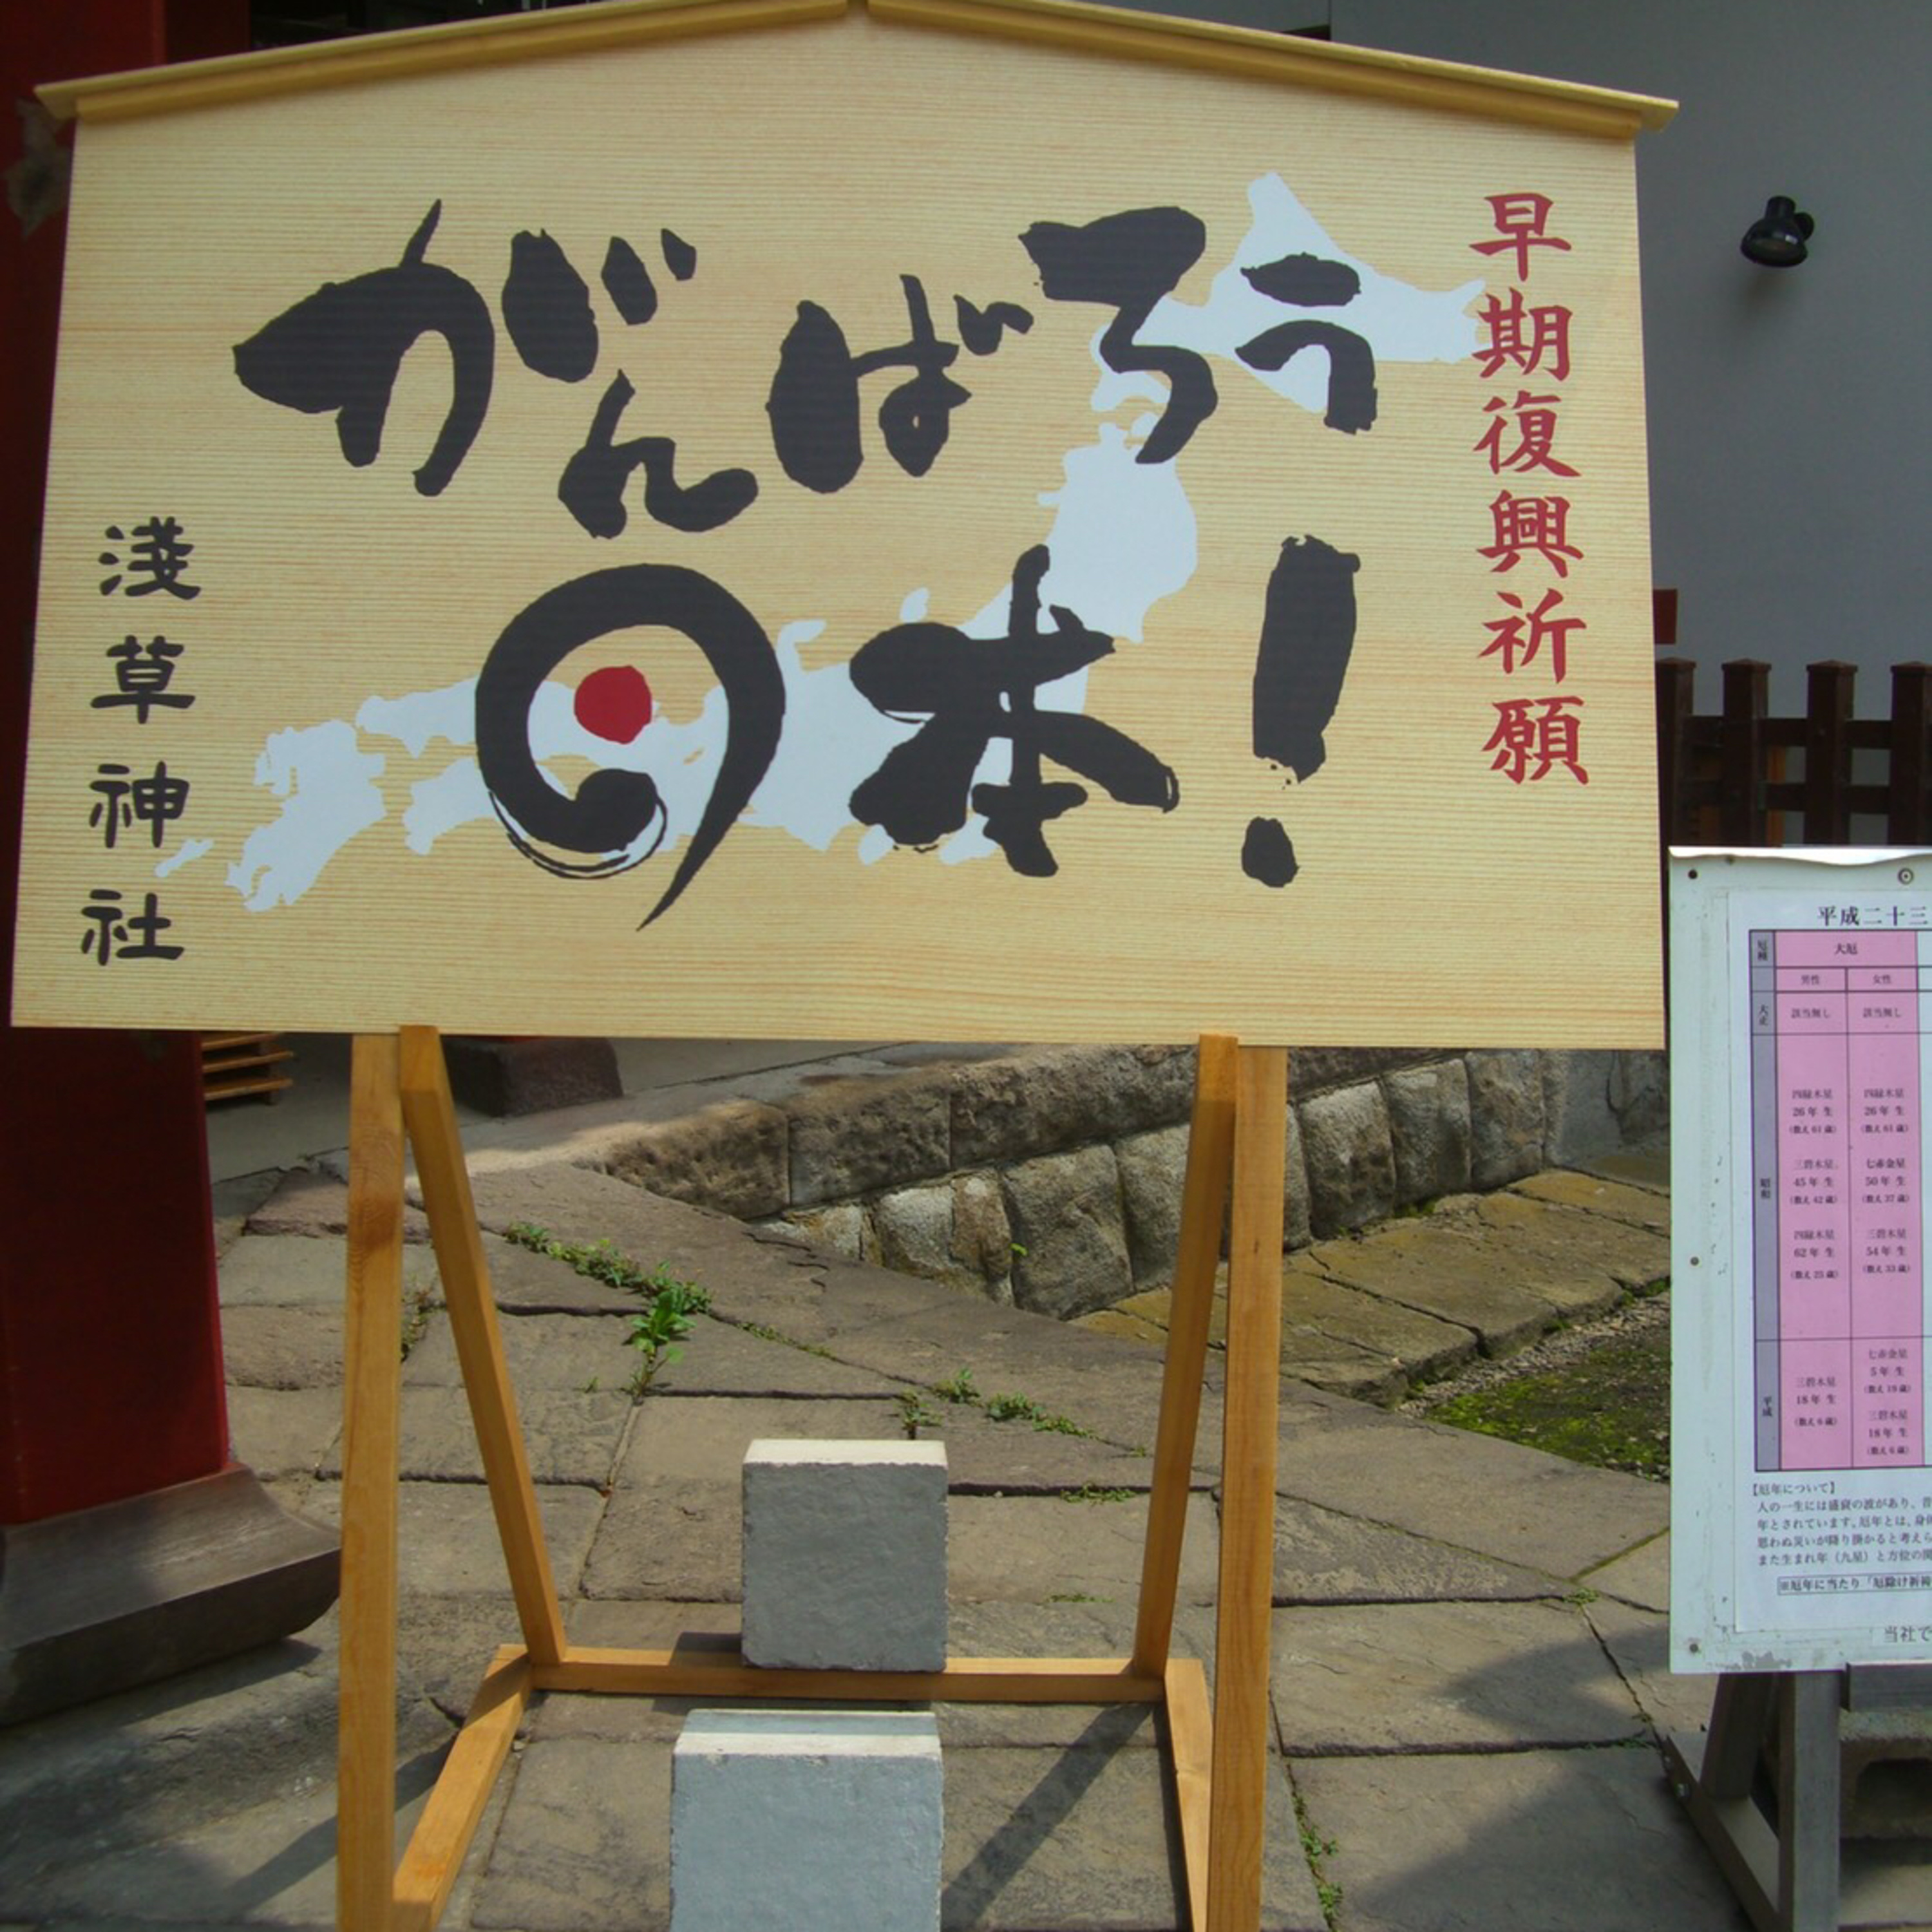 早期復興祈願
がんばろう
日本!
淺草神社
平成二十三
厄種
大厄
男性 女性
大正
該当無し 該当無し
昭和
四緑木星 四緑木星
26年生 26年生
(数え61歳) (数え61歳)
三碧木星 七赤金星
45年生 50年生
(数え42歳) (数え37歳)
四緑木星 三碧木星
62年生 54年生
(数え25歳) (数え33歳)
平成
七赤金星
5年生
(数え19歳)
三碧木星 三碧木星
18年生 18年生
(数え6歳) (数え6歳)
【厄年について】
人の一生には盛衰の波があり、昔
年とされています。厄年とは、身体
思わぬ災いが降り掛かると考えら
また生まれ年(九星)と方位の関
※厄年に当たり「厄除け祈祷
当社で